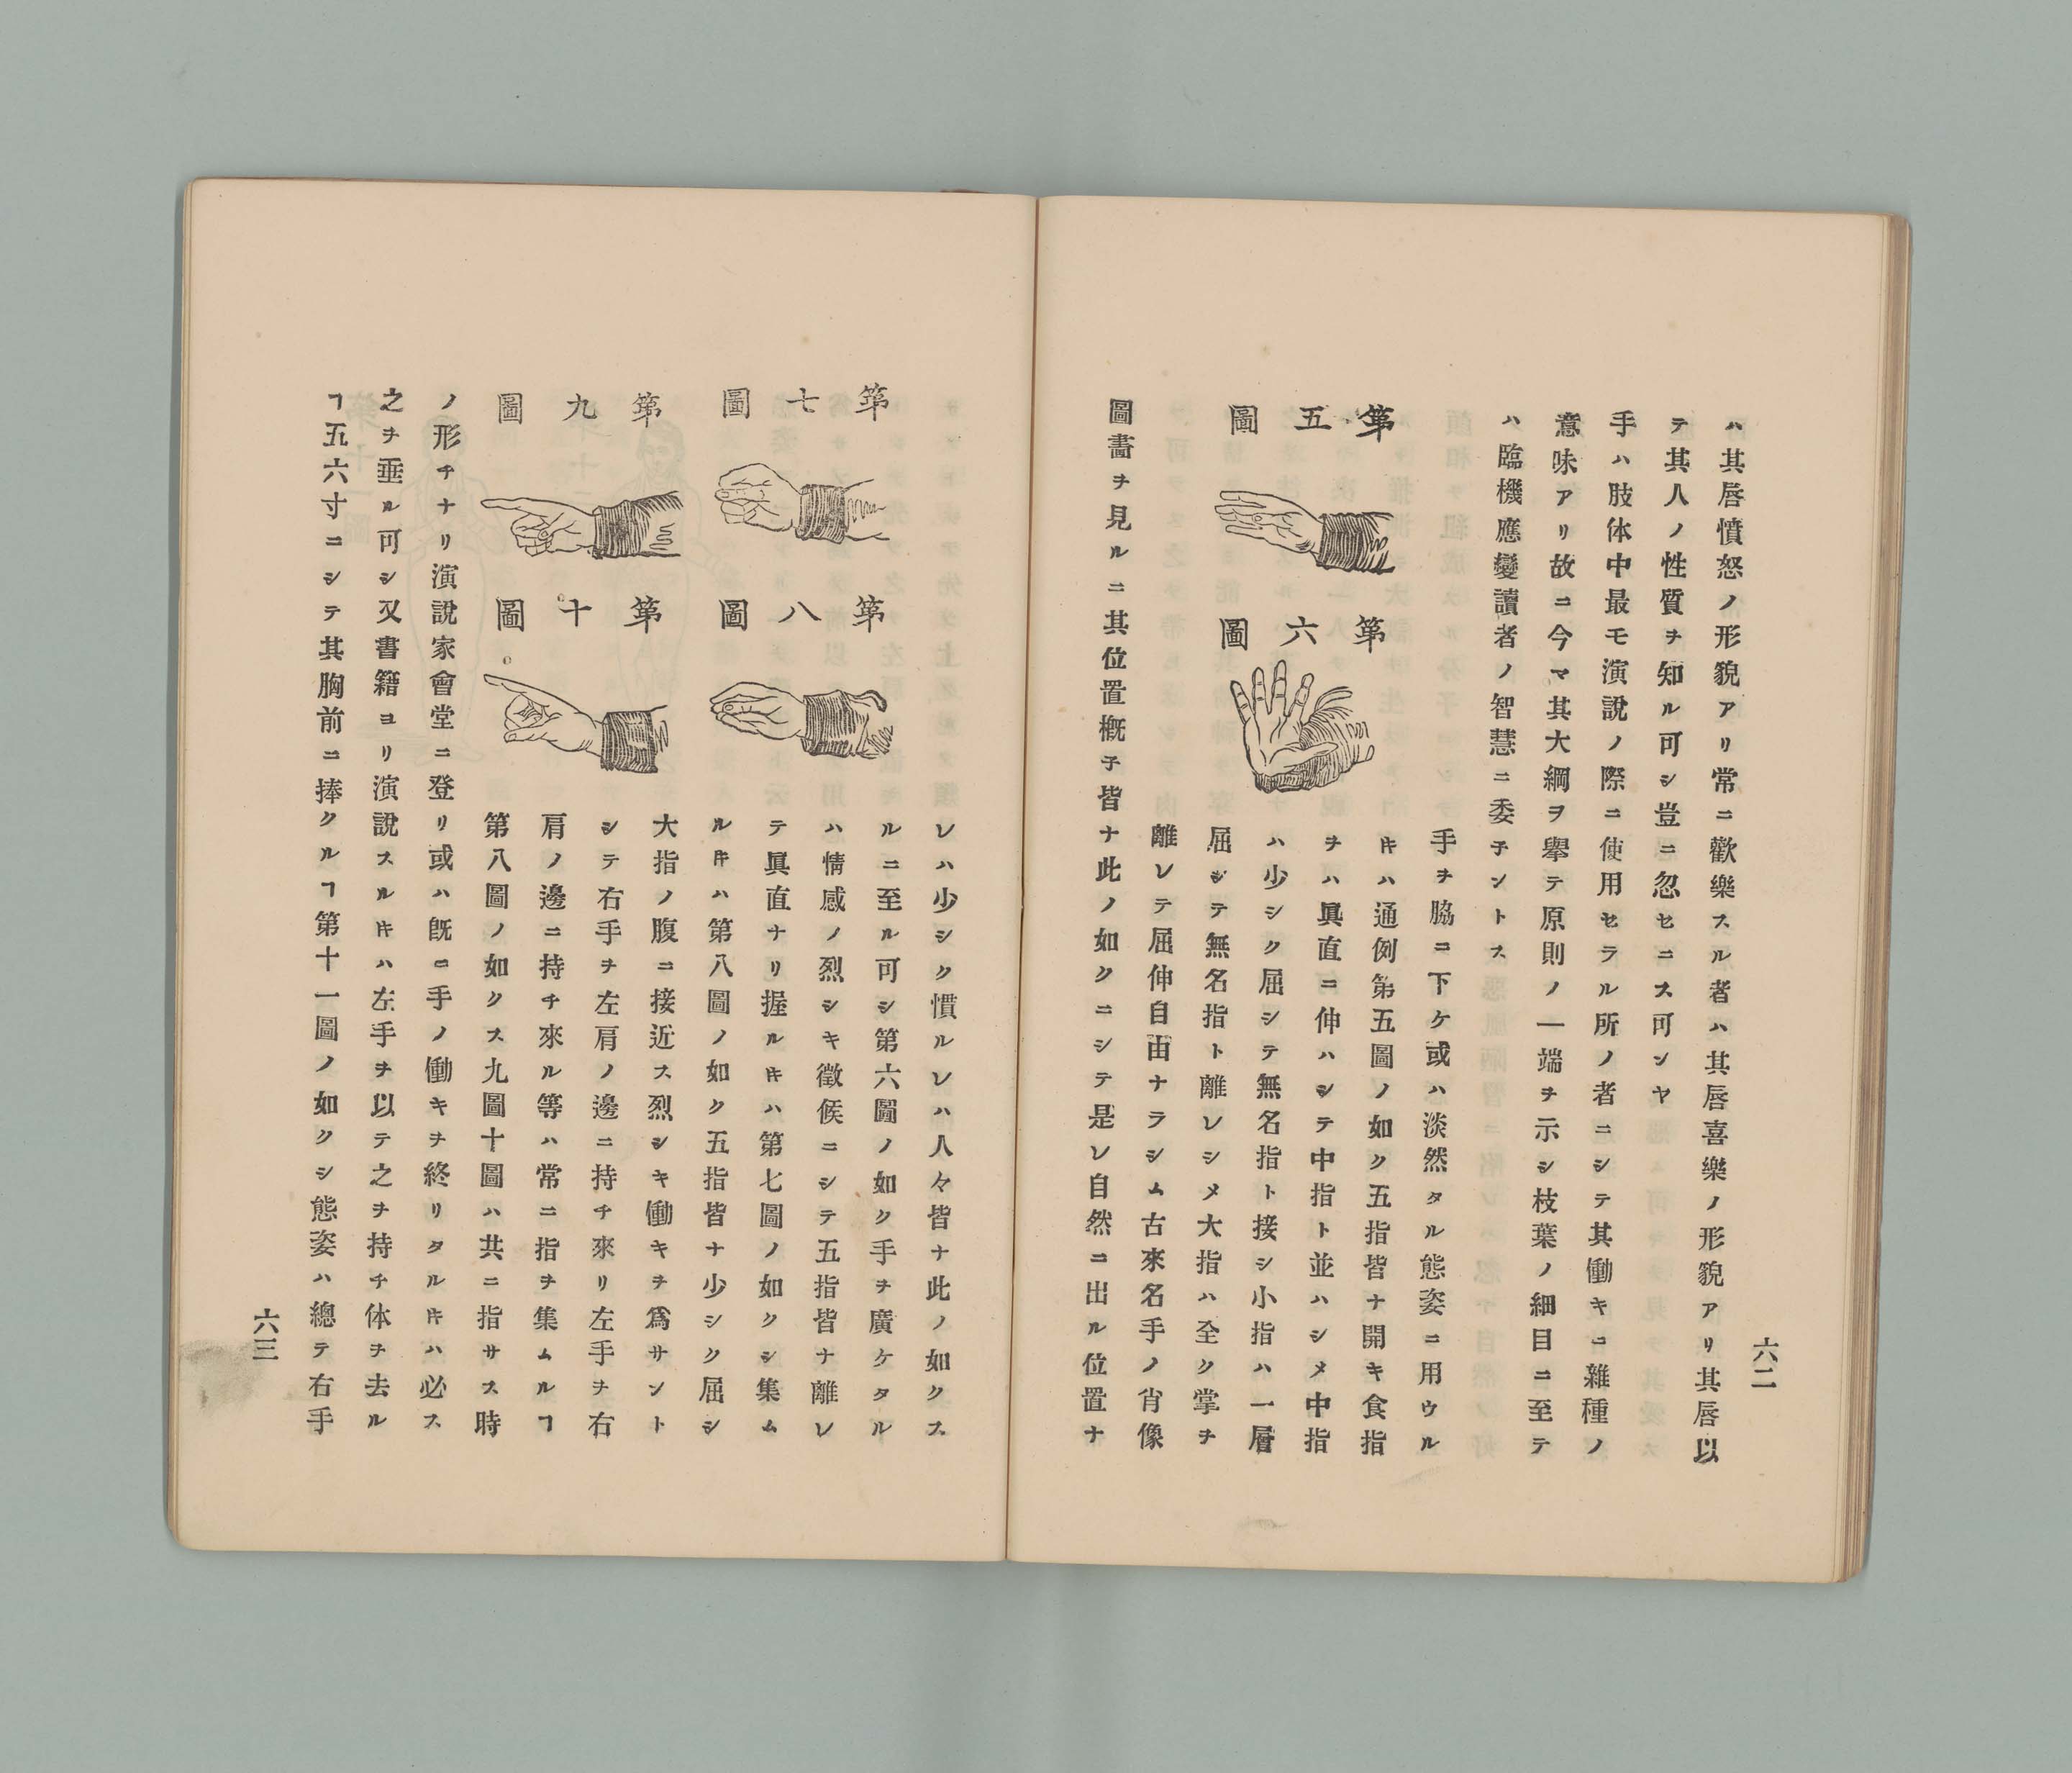 ハ其唇憤怒ノ形貌アリ常ニ歡樂スル者ハ其唇喜樂ノ形貌アリ其唇以
テ其人ノ性質ヲ知ル可シ豈ニ忽セニス可ンヤ
手ハ肢体中最モ演說ノ際ニ使用セラル所ノ者ニシテ其働キニ雜種ノ
意味アリ故ニ今マ其大綱ヲ擧テ原則ノ一端ヲ示シ枝葉ノ細目ニ至テ
ハ臨機應變讀者ノ智慧ニ委子ントス
第五圖
第六圖
手ヲ脇ニ下ケ或ハ淡然タル態姿ニ用ウル
𪜈ハ通例第五圖ノ如ク五指皆ナ開キ食指
ヲハ眞直ニ伸ハシテ中指ト並ハシメ中指
ハ少シク屈シテ無名指ト接シ小指ハ一層
屈シテ無名指ト離レシメ大指ハ全ク掌ヲ
離レテ屈伸自由ナラシム古來名手ノ肖像
圖畵ヲ見ルニ其位置槪子皆ナ此ノ如クニシテ是レ自然ニ出ル位置ナ
六二
レハ少シク慣ルレハ人々皆ナ此ノ如クス
ルニ至ル可シ第六圖ノ如ク手ヲ廣ケタル
ハ情感ノ烈シキ徵候ニシテ五指皆ナ離レ
テ眞直ナリ握ル𪜈ハ第七圖ノ如クシ集ム
ル𪜈ハ第八圖ノ如ク五指皆ナ少シク屈シ
大指ノ腹ニ接近ス烈シキ働キヲ爲サント
シテ右手ヲ左肩ノ邊ニ持チ來リ左手ヲ右
肩ノ邊ニ持チ來ル等ハ常ニ指ヲ集ムルヿ
第八圖ノ如クス九圖十圖ハ共ニ指サス時
第七圖
第八圖
第九圖
第十圖
ノ形チナリ演說家會堂ニ登リ或ハ旣ニ手ノ働キヲ終リタル𪜈ハ必ス
之ヲ垂ル可シ又書籍ヨリ演說スル𪜈ハ左手ヲ以テ之ヲ持チ体ヲ去ル
ヿ五六寸ニシテ其胸前ニ捧クルヿ第十一圖ノ如クシ態姿ハ總テ右手
六三